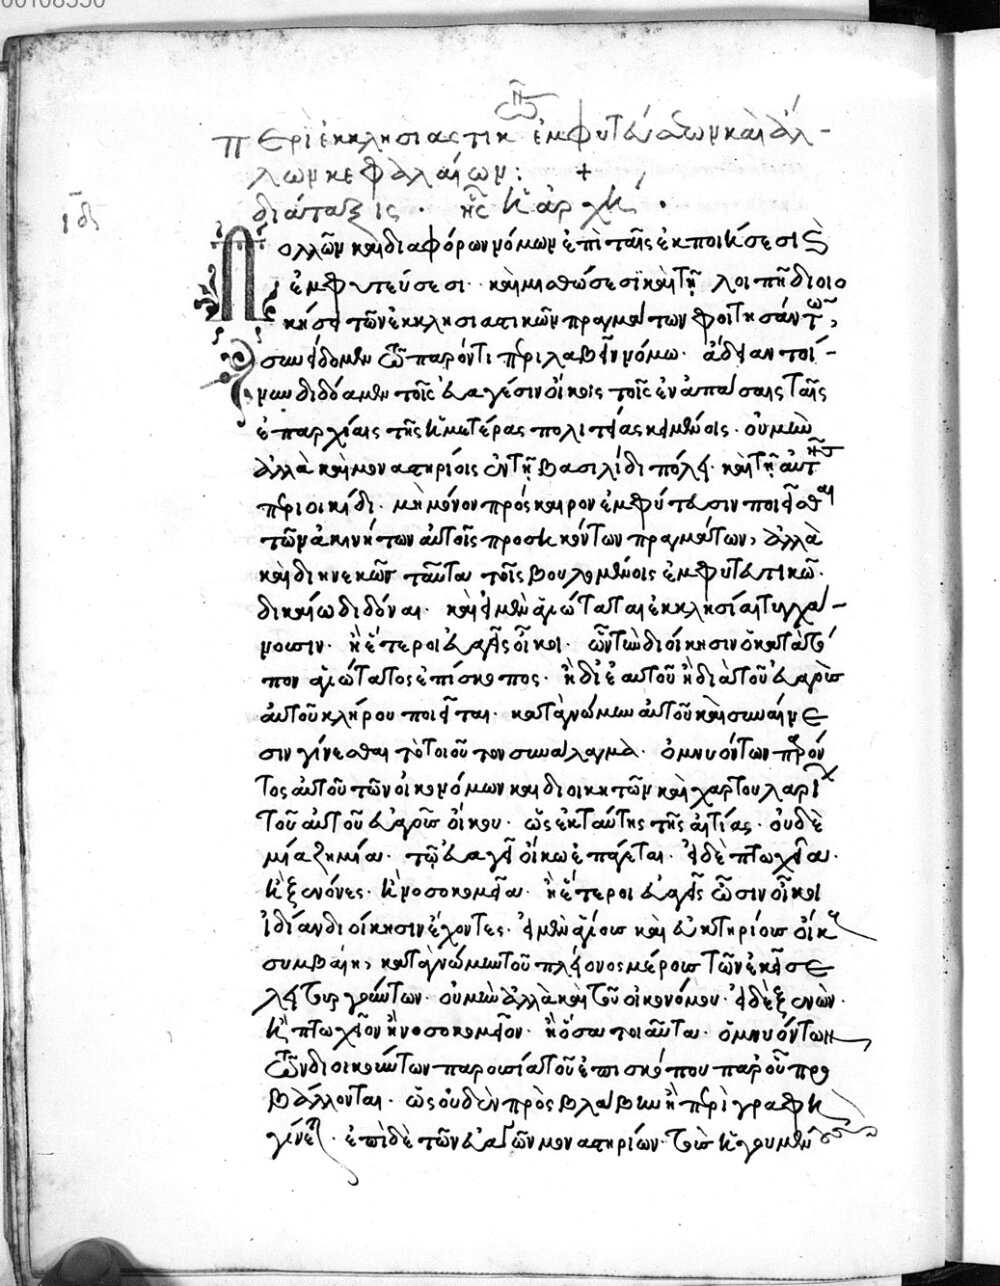 00108550
περὶ ἐκκλησιαστικ ἐμφυτεύσεων καὶ ἄλ-
λων κεφαλαίων: +
διάταξις. ἧς ἡ ἀρχή.
Πολλῶν καὶ διαφόρων νόμων ἐπὶ ταῖς ἐκποιήσεσι καὶ
ἐμφυτεύσεσι. καὶ μισθώσεσι καὶ τῇ λοιπῇ διοι
κήσει τῶν ἐκκλησιαστικῶν πραγμάτων φοιτησάντων,
συνείδομεν τῷ παρόντι περιλαβεῖν νόμῳ. ἄδειαν τοί-
νυν δίδομεν τοῖς εὐαγέσιν οἴκοις τοῖς ἐν ἁπάσαις ταῖς
ἐπαρχίαις τῆς ἡμετέρας πολιτείας κειμένοις. οὐ μὴν
ἀλλὰ καὶ μοναστηρίοις ἐν τῇ βασιλίδι πόλει. καὶ τῇ αὐτῆς
περιοικίδι. μὴ μόνον πρόσκαιρον ἐμφύτευσιν ποιεῖσθαι
τῶν ἀκινήτων αὐτοῖς προσηκόντων πραγμάτων, ἀλλὰ
καὶ διηνεκῶς ταῦτα τοῖς βουλομένοις ἐμφυτευτικῷ
δικαίῳ διδόναι. καὶ εἰ μὲν ἁγιώταται ἐκκλησίαι τυγχά-
νοισιν. ἢ ἕτεροι εὐαγεῖς οἶκοι. ὧν τὴν διοίκησιν ὁ κατὰ τό
πον ἁγιώτατος ἐπίσκοπος. ἢ δι' ἑαυτοῦ ἢ διὰ τοῦ εὐαγοῦς
αὐτοῦ κλήρου ποιεῖται. κατὰ γνώμην αὐτοῦ καὶ συναίνε
σιν γίνεσθαι τὸ τοιοῦτον συνάλλαγμα. ὀμνυόντων παρόν
τος αὐτοῦ τῶν οἰκονόμων καὶ διοικητῶν καὶ χαρτουλαρίων
τοῦ αὐτοῦ εὐαγοῦς οἴκου. ὡς ἐκ ταύτης τῆς αἰτίας. οὐδε
μία ζημία. τῷ εὐαγεῖ οἴκῳ ἐπάγεται. εἰ δὲ πτωχεῖα.
ἢ ξενόνες. ἢ νοσοκομεῖα. ἢ ἕτεροι εὐαγεῖς ὦσιν οἶκοι
ἰδίαν διοίκησιν ἔχοντες. εἰ μὲν ἁγίοις καὶ εὐκτηρίοις οἴκοις
συμβαίη, κατὰ γνώμην τοῦ πλείονος μέρους τῶν ἐκεῖσε
λειτουργούντων. οὐ μὴν ἀλλὰ καὶ τοῦ οἰκονόμου. εἰ δὲ ξενών.
ἢ πτωχεῖον ἢ νοσοκομεῖον. ἢ ὅσα τοιαῦτα. ὀμνυόντων
τῶν διοικούντων παρουσίᾳ τοῦ ἐπισκόπου παρ' οὗ προ
βάλλονται. ὡς οὐδὲν πρὸς βλάβην ἢ περιγραφὴν
γίνεται. ἐπὶ δὲ τῶν εὐαγῶν μοναστηρίων. τοὺς ἡγουμένους